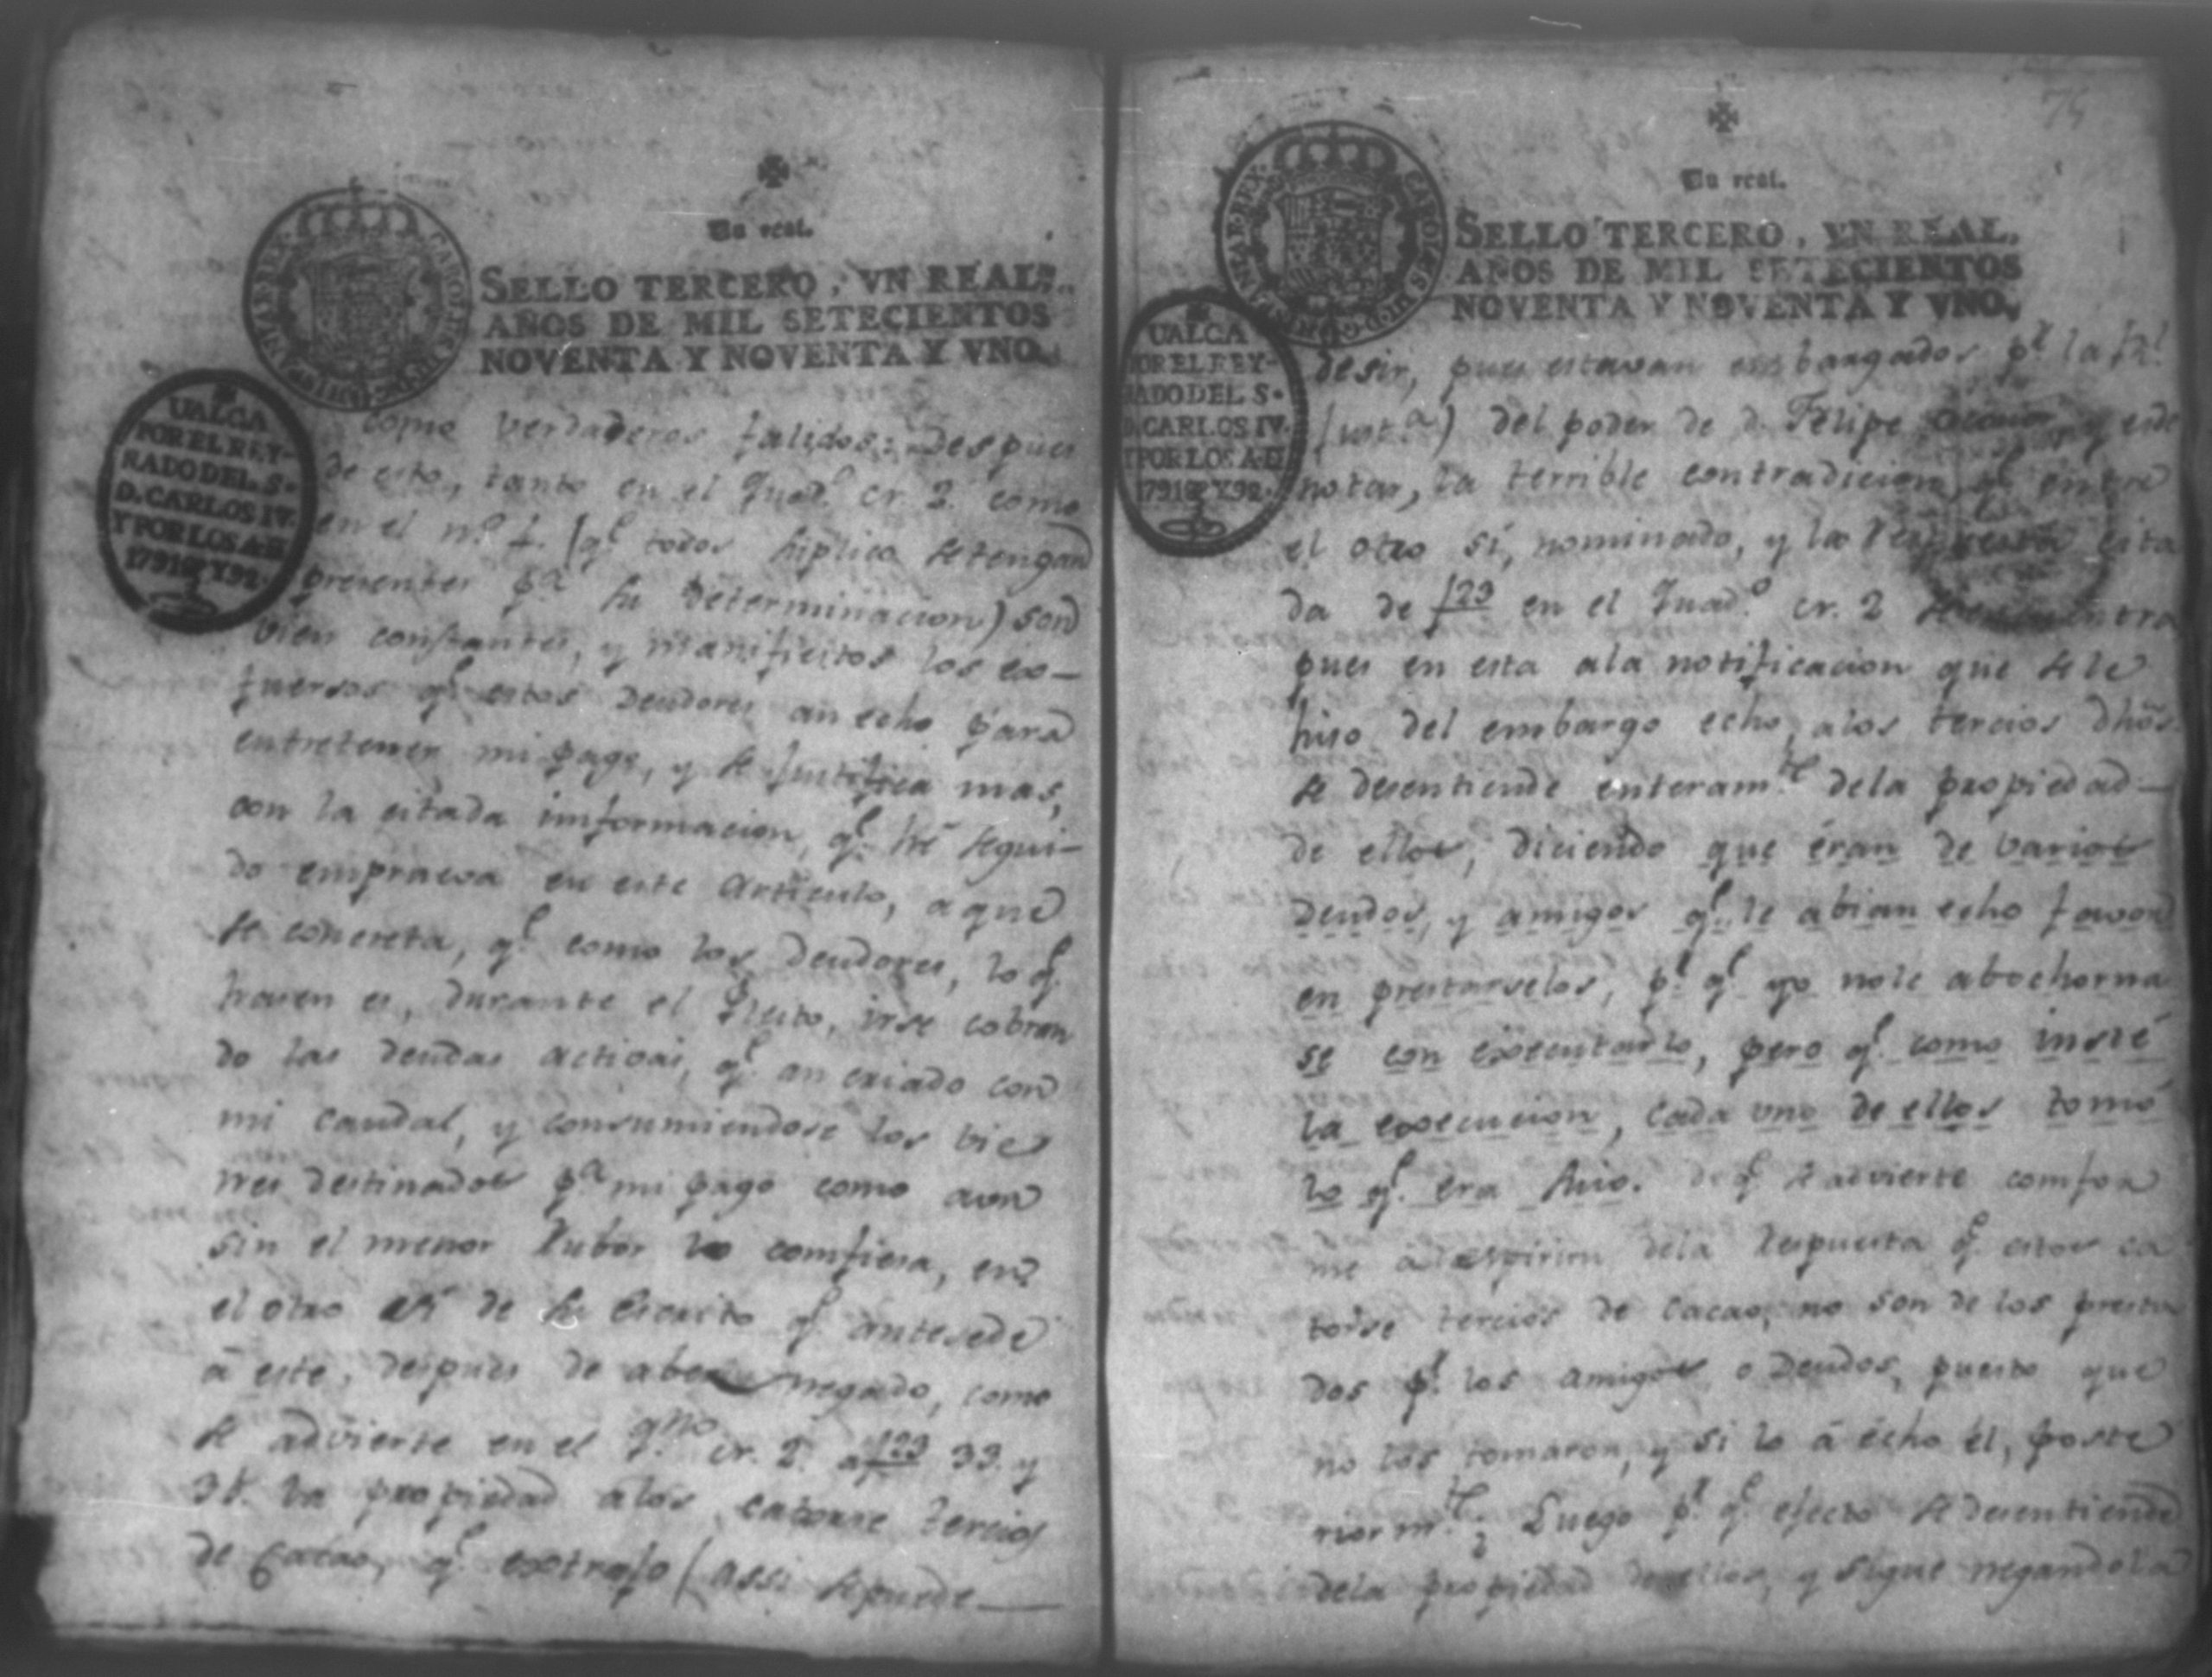 Un real.
SELLO TERCERO, VN REAL,
AÑOS DE MIL SETECIENTOS
NOVENTA Y NOVENTA Y VNO.
CAROLUS
UALGA
POR EL REY-
NADO DEL S.
D. CARLOS IV.
Y POR LOS A. D
1791 Y 92.
como verdaderos falidos: Despues
de esto, tanto en el Quad.º cr. 2. como
en el n.º 1. (q.e todos suplico se tengan
presentes p.a su determinacion) son
bien constantes, y manifiestos los ex-
fuersos q.e estos Deudores an echo para
entretener mi pago, y se justifica mas,
con la citada imformacion, q.e hé segui-
do emprueva en este Articulo, a que
se concreta, q.e como los Deudores, lo q.e
traen es, durante el Pleito, irse cobran
do las deudas activas, q.e an criado con
mi caudal, y consumiendose los bie
nes destinados p.a mi pago como aun
sin el menor Rubor lo comfiesa, en
el otro sí de su Escrito q.e antesede
á este, despues de aber negado, como
se advierte en el q.no cr. 2. a f 33. y
la propiedad alos catorse tercios
de Cacao, q.e extrajo (assi se puede
75
Un real.
SELLO TERCERO, VN REAL,
AÑOS DE MIL SETECIENTOS
NOVENTA Y NOVENTA Y VNO.
CAROLUS
UALGA
POR EL REY-
NADO DEL S.
D. CARLOS IV.
Y POR LOS A. D
1791 Y 92.
desir, pues estavan embargados p.r la R.l
Just.a) del poder de D. Felipe y es de
notar, la terrible contradicion q.e entre
el otro sí, nominado, y la respuesta cita
da de f en el Quad.º cr. 2 se encuentra
pues en esta ala notificacion que se le
hiso del embargo echo, alos tercios dhõs
se desentiende enteram.te dela propiedad
de ellos, diciendo que éran de varios
deudos, y amigos q.e le abian echo favor
en prestarselos, p.r q.e yo nole abochorna
se con executarlo, pero q.e como insté
la execucion, cada uno de ellos tomó
lo q.e era suio. de q.e se advierte comfor
me al espiritu dela Respuesta q.e estos ca
torse tercios de Cacao, no son de los presta
dos p.r los amigos o Deudos, puesto que
no los tomaron, y si lo á echo él, poste
riorm.te; Luego p.r q.e efecto se desentiende
dela propiedad de ellos, y sigue negandola